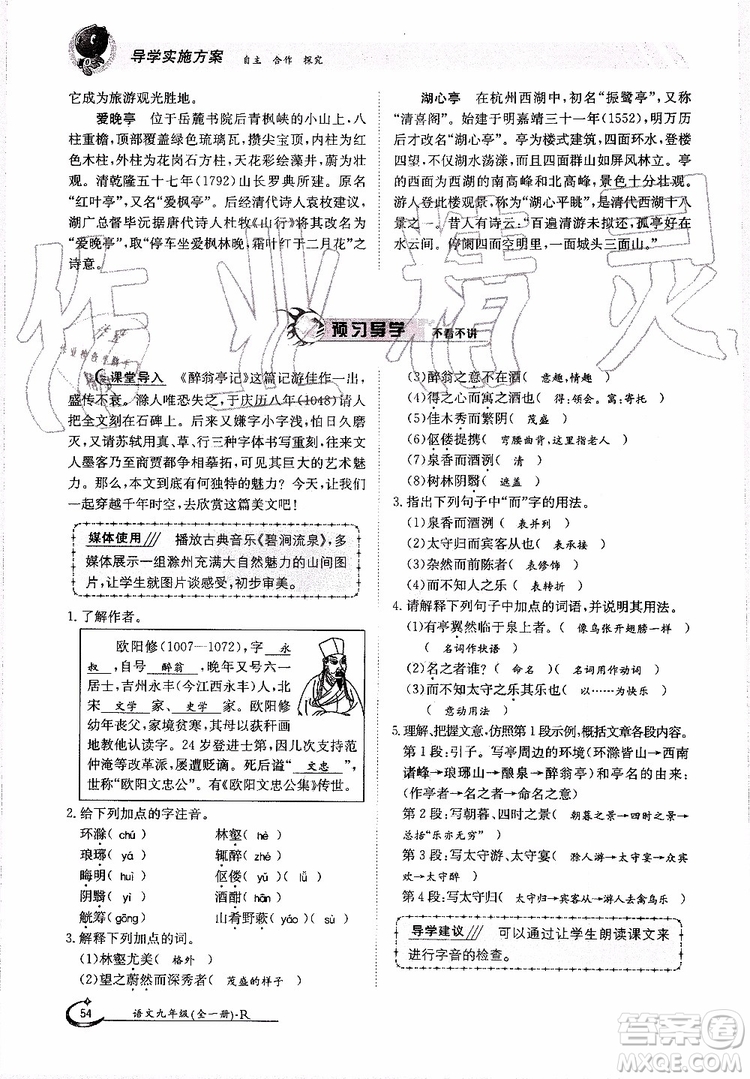 导学实施方案 自主 合作 探究
它成为旅游观光胜地。
爱晚亭 位于岳麓书院后青枫峡的小山上,八
柱重檐,顶部覆盖绿色琉璃瓦,攒尖宝顶,内柱为红
色木柱,外柱为花岗石方柱,天花彩绘藻井,蔚为壮
观。清乾隆五十七年(1792)山长罗典所建。原名
“红叶亭”,又名“爱枫亭”。后经清代诗人袁枚建议,
湖广总督毕沅据唐代诗人杜牧《山行》将其更名为
“爱晚亭”,取“停车坐爱枫林晚,霜叶红于二月花”之
诗意。
湖心亭 在杭州西湖中,初名“振鹭亭”,又称
“清喜阁”。始建于明嘉靖三十一年(1552),明万历
后才改名“湖心亭”。亭为楼式建筑,四面环水,登楼
四望,不仅湖水荡漾,而且四面群山如屏风林立。亭
的西面为西湖的南高峰和北高峰,景色十分壮观。
游人登此楼观景,称为“湖心平眺”,是清代西湖十八
景之一。昔人有诗云:“百遍清游未拟还,孤亭好在
水云间。停阑四面空明里,一面城头三面山。”
预习导学 不看不讲
课堂导入 《醉翁亭记》这篇记游佳作一出,
盛传不衰。滁人唯恐失之,于庆历八年(1048)就请
人把全文刻在石碑上。后来又嫌字小刻浅,怕日久磨
灭,又请苏轼用真、草、行三种字体书写重刻。以后
文人墨客乃至商贾都争相摹拓,可见其巨大艺术魅
力。当然,本文到底有何独特的魅力?今天,让我们一
起穿越千年时空,去欣赏这篇美文吧!
媒体使用 播放古典音乐《碧涧流泉》,多
媒体展示一组滁州充满大自然魅力的山间图
片,让学生就图片谈感受,初步审美。
1. 了解作者。
欧阳修(1007—1072),字 永
叔 ,自号 醉翁 ,晚年又号六一
居士,吉州永丰(今江西永丰)人,北
宋 文学 家、 史学 家。欧阳修
幼年丧父,家境贫寒,母亲以荻画
地教他认读字。24 岁登进士第,因几次支持范
仲淹等改革派,屡遭贬谪。死后谥“ 文忠 ”,
世称“欧阳文忠公”。有《欧阳文忠公集》传世。
2. 给下列加点的字注音。
环滁( chú ) 林壑( hè )
琅琊( yá ) 辄醉( zhé )
晦明( huì ) 伛偻( yǔ )( lǚ )
阴翳( yì ) 酒酣( hān )
觥筹( gōng ) 山肴野蔌( yáo )( sù )
3. 解释下列加点的词。
(1)林壑尤美( 格外 )
(2)望之蔚然而深秀者( 茂盛的样子 )
(3)醉翁之意不在酒( 意趣,情趣 )
(4)得之心而寓之酒也( 得:领会。寓:寄托 )
(5)佳木秀而繁阴( 茂盛 )
(6)伛偻提携( 弯腰曲背,这里指老人 )
(7)泉香而酒洌( 清 )
(8)树林阴翳( 遮盖 )
3. 指出下列句子中“而”字的用法。
(1)泉香而酒洌( 表并列 )
(2)太守归而宾客从也( 表承接 )
(3)杂然而前陈者( 表修饰 )
(4)而不知人之乐( 表转折 )
4. 请解释下列句子中加点的词语,并写出其用法。
(1)有亭翼然临于泉上者。( 像鸟张开翅膀一样 )
( 名词作状语 )
(2)名之者谁?( 命名 )( 名词用作动词 )
(3)而不知太守之乐其乐也( 以……为快乐 )
( 意动用法 )
5. 理解、把握文意,仿照第 1 段示例,概括文章各段内容。
第 1 段:引子。写亭周边的环境(环滁皆山→西南
诸峰→琅琊山→酿泉→醉翁亭)和亭的由来:
(作亭者→名亭者→亭名含义)
第 2 段:写朝暮、四时之景( 朝暮之景→四时之景→
总括“乐亦无穷” )
第 3 段:写太守游、太守宴( 滁人游→太守宴→众宾
欢→太守醉 )
第 4 段:写太守归( 太守归→宾客从→游人去禽鸟乐 )
导学建议 可以通过让学生朗读课文来
进行字音的检查。
54 语文九年级(全一册)-R
作业精灵
MXQE.COM